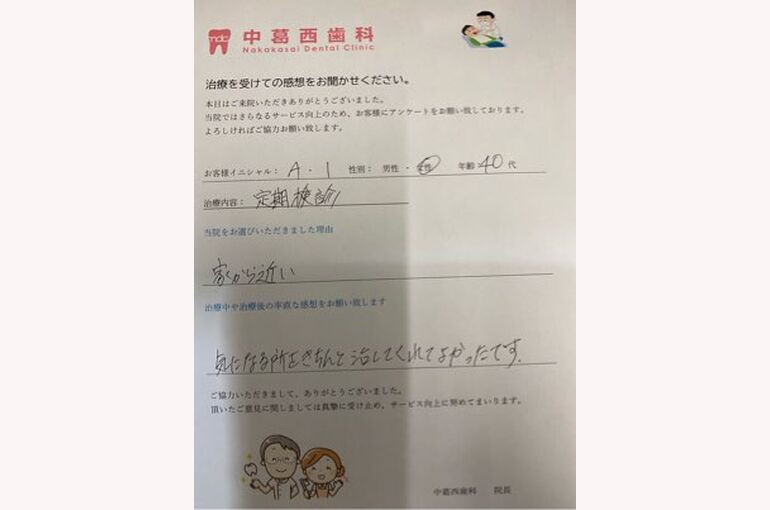 ndc 中葛西歯科
Nakakasai Dental Clinic
治療を受けての感想をお聞かせください。
本日はご来院いただきありがとうございました。
当院ではさらなるサービス向上のため、お客様にアンケートをお願い致しております。
よろしければご協力お願い致します。
お客様イニシャル： A . I 性別： 男性 ・ 女性 年齢 40 代
治療内容： 定期検診
当院をお選びいただきました理由
家から近い
治療中や治療後の率直な感想をお願い致します
気になる所をきちんと治してくれてよかったです。
ご協力いただきまして、ありがとうございました。
頂いたご意見に関しましては真摯に受け止め、サービス向上に努めてまいります。
中葛西歯科 院長